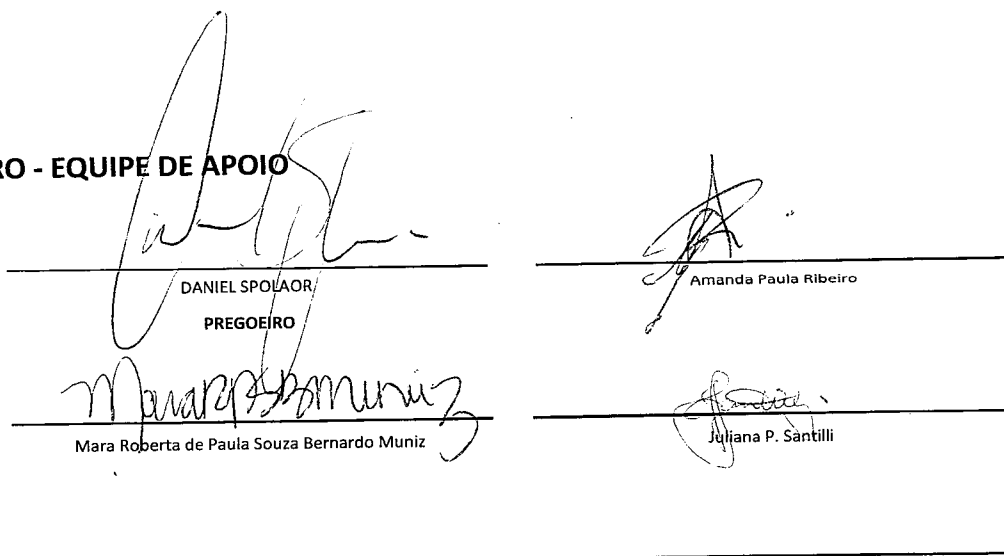 RO - EQUIPE DE APOIO
DANIEL SPOLAOR
PREGOEIRO
Amanda Paula Ribeiro
Mara Roberta de Paula Souza Bernardo Muniz
Juliana P. Santilli